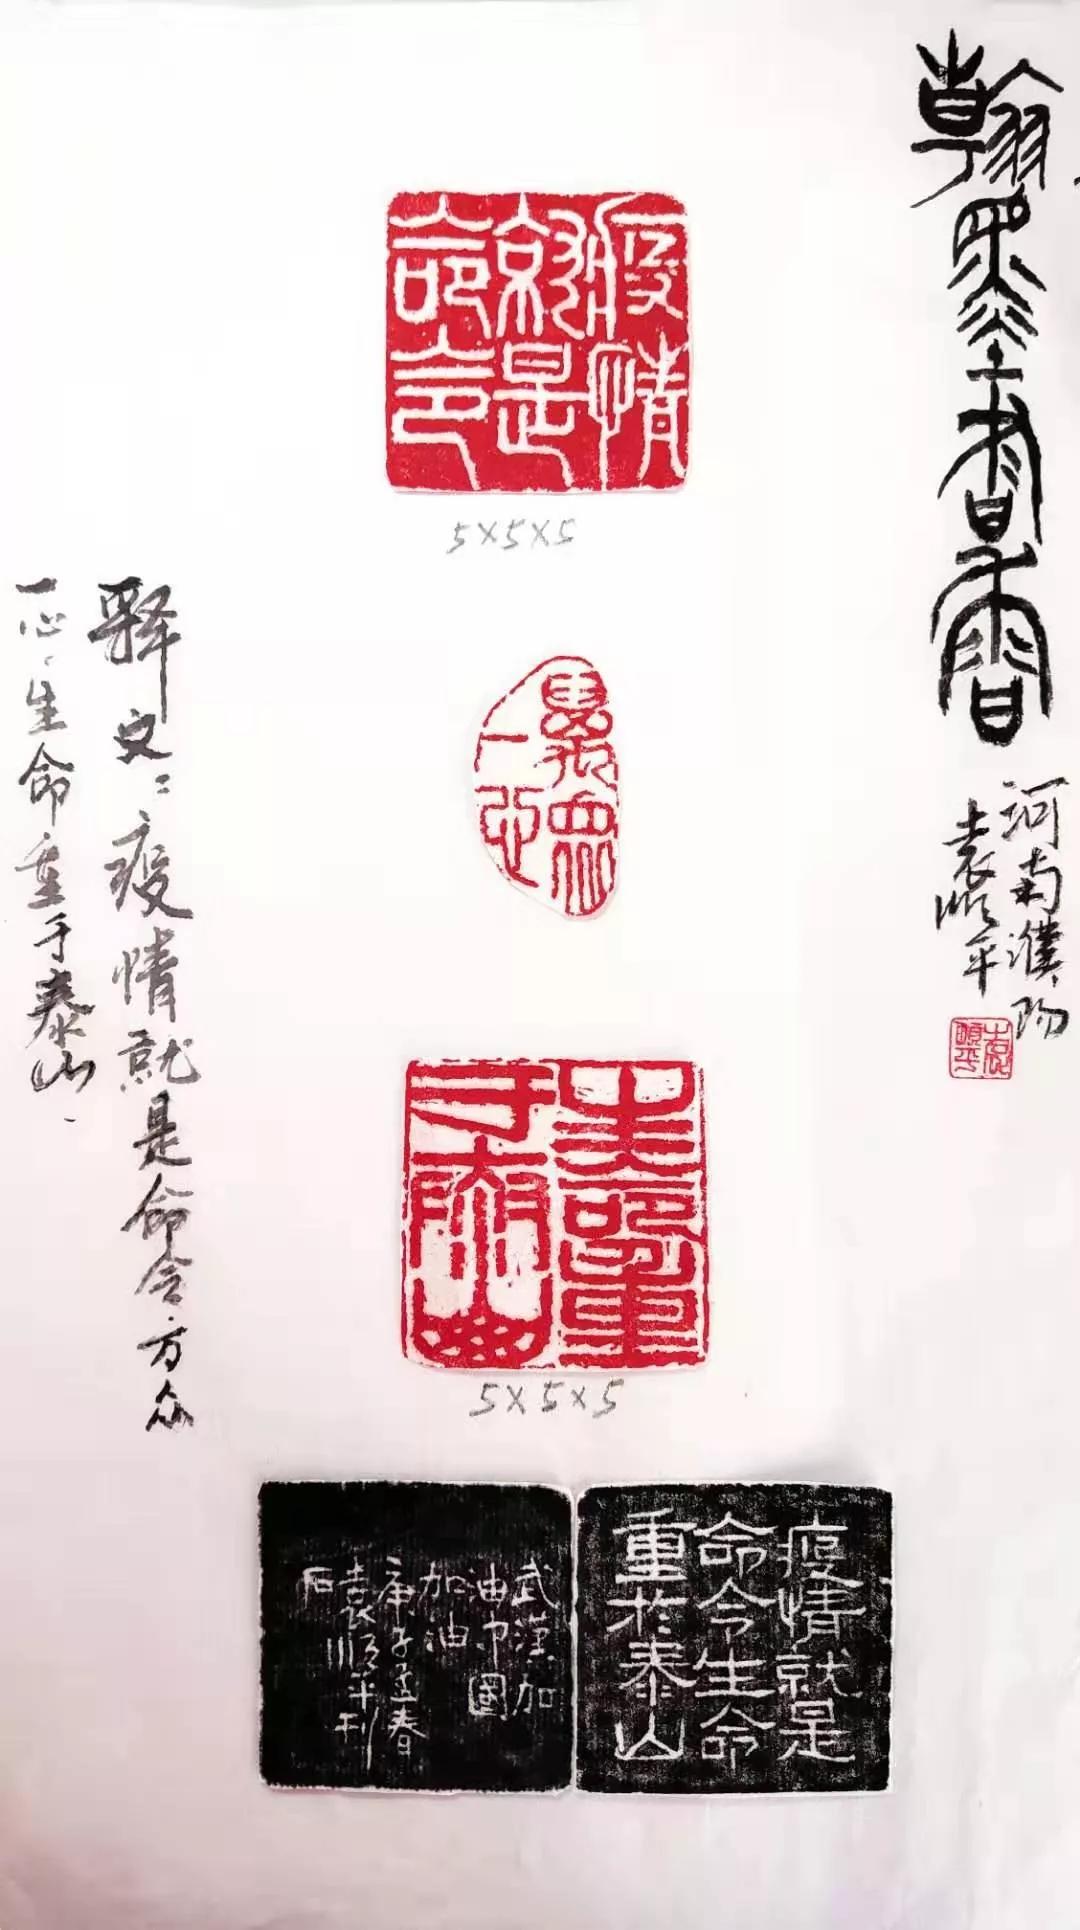 翰墨書香
河南濮阳
袁顺平
袁順平
疫情
就是
命令
5×5×5
萬眾
一心
生命重
于泰山
5×5×5
释文：疫情就是命令.万众
一心.生命重于泰山.
疫情就是
命令生命
重於泰山
武漢加
油中國
加油
庚子孟春
袁順平刊
石